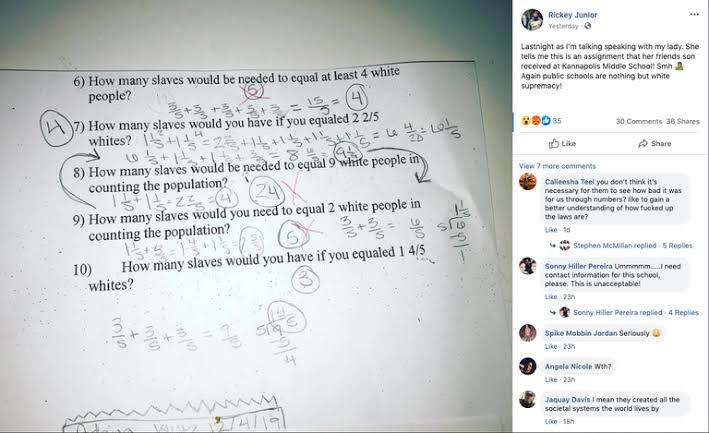 6) How many slaves would be needed to equal at least 4 white
people?
5
3/5+3/5+3/5+3/5+3/5= 15/5= 4
4
7) How many slaves would you have if you equaled 2 2/5
whites?
8) How many slaves would be needed to equal 9 white people in
counting the population?
24
9) How many slaves would you need to equal 2 white people in
counting the population?
5
3/5+3/5= 6/5
10) How many slaves would you have if you equaled 1 4/5
whites?
3
3/5+3/5+3/5=9/5
12/4/19
Rickey Junior
Yesterday ·
Lastnight as I'm talking speaking with my lady. She
tells me this is an assignment that her friends son
received at Kannapolis Middle School! Smh 🤷
Again public schools are nothing but white
supremacy!
35
30 Comments 36 Shares
Like
Share
View 7 more comments
Calleesha Teel you don't think it's
necessary for them to see how bad it was
for us through numbers? like to gain a
better understanding of how fucked up
the laws are?
Like · 1d
Stephen McMillan replied · 5 Replies
Sonny Hiller Pereira Ummmmm.....I need
contact information for this school,
please. This is unacceptable!
Like · 23h
Sonny Hiller Pereira replied · 4 Replies
Spike Mobbin Jordan Seriously 😳
Like · 23h
Angela Nicole Wth?
Like · 23h
Jaquay Davis I mean they created all the
societal systems the world lives by
Like · 18h